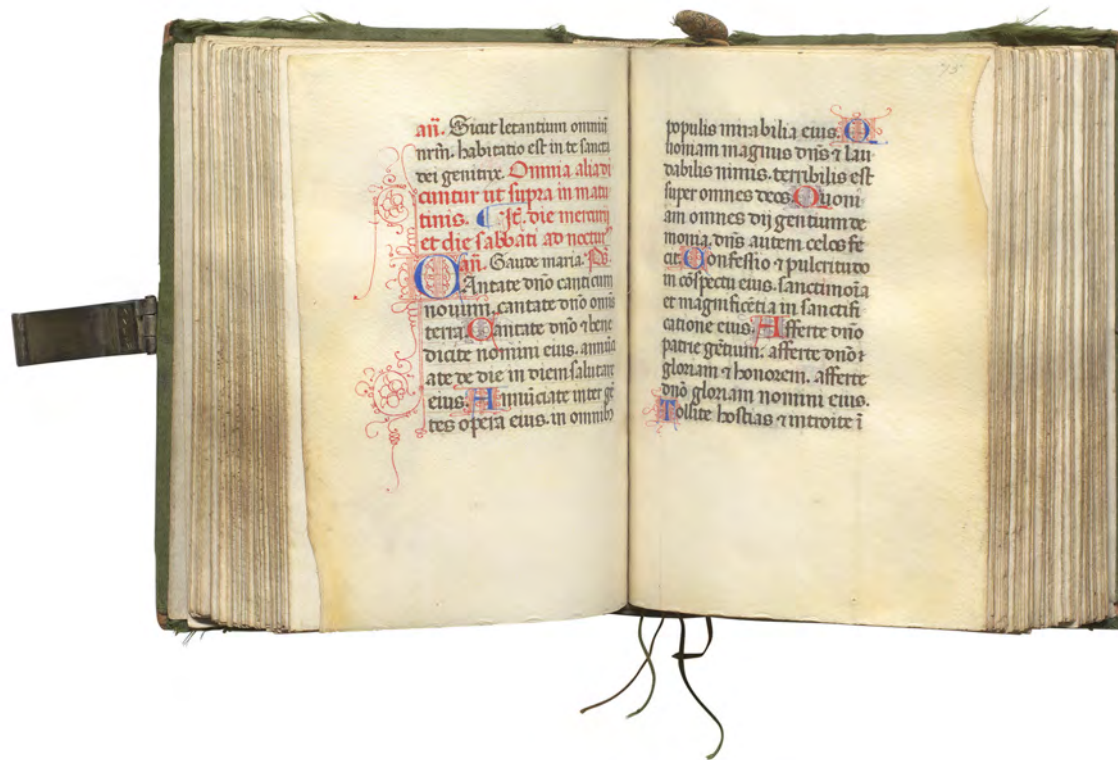 an̄. Sicut letantium omniū
nrm̄. habitatio est in te sancta
dei genitrix. Omnia alia di
cuntur ut supra in matu
tinis. ¶ It̄. die mercurij
et die sabbati ad noctur̄
an̄. Gaude maria. Ps̄.
CAntate dn̄o canticum
nouum. cantate dn̄o omīs
terra. Cantate dn̄o ⁊ bene
dicite nomini eius. annūci
ate de die in diem salutare
eius. Annūciate inter gē
tes opera eius. in omnibꝫ
75
populis mirabilia eius. Q
uoniam magnus dn̄s ⁊ lau
dabilis nimis. terribilis est
super omnes deos. Quoni
am omnes dij gentium de
monia. dn̄s autem celos fe
cit. Confessio ⁊ pulcritudo
in cōspectu eius. sanctimoīa
et magnificētia in sanctifi
catione eius. Afferte dn̄o
patrie gētium. afferte dn̄o
gloriam ⁊ honorem. afferte
dn̄o gloriam nomini eius.
Tollite hostias ⁊ introite ī